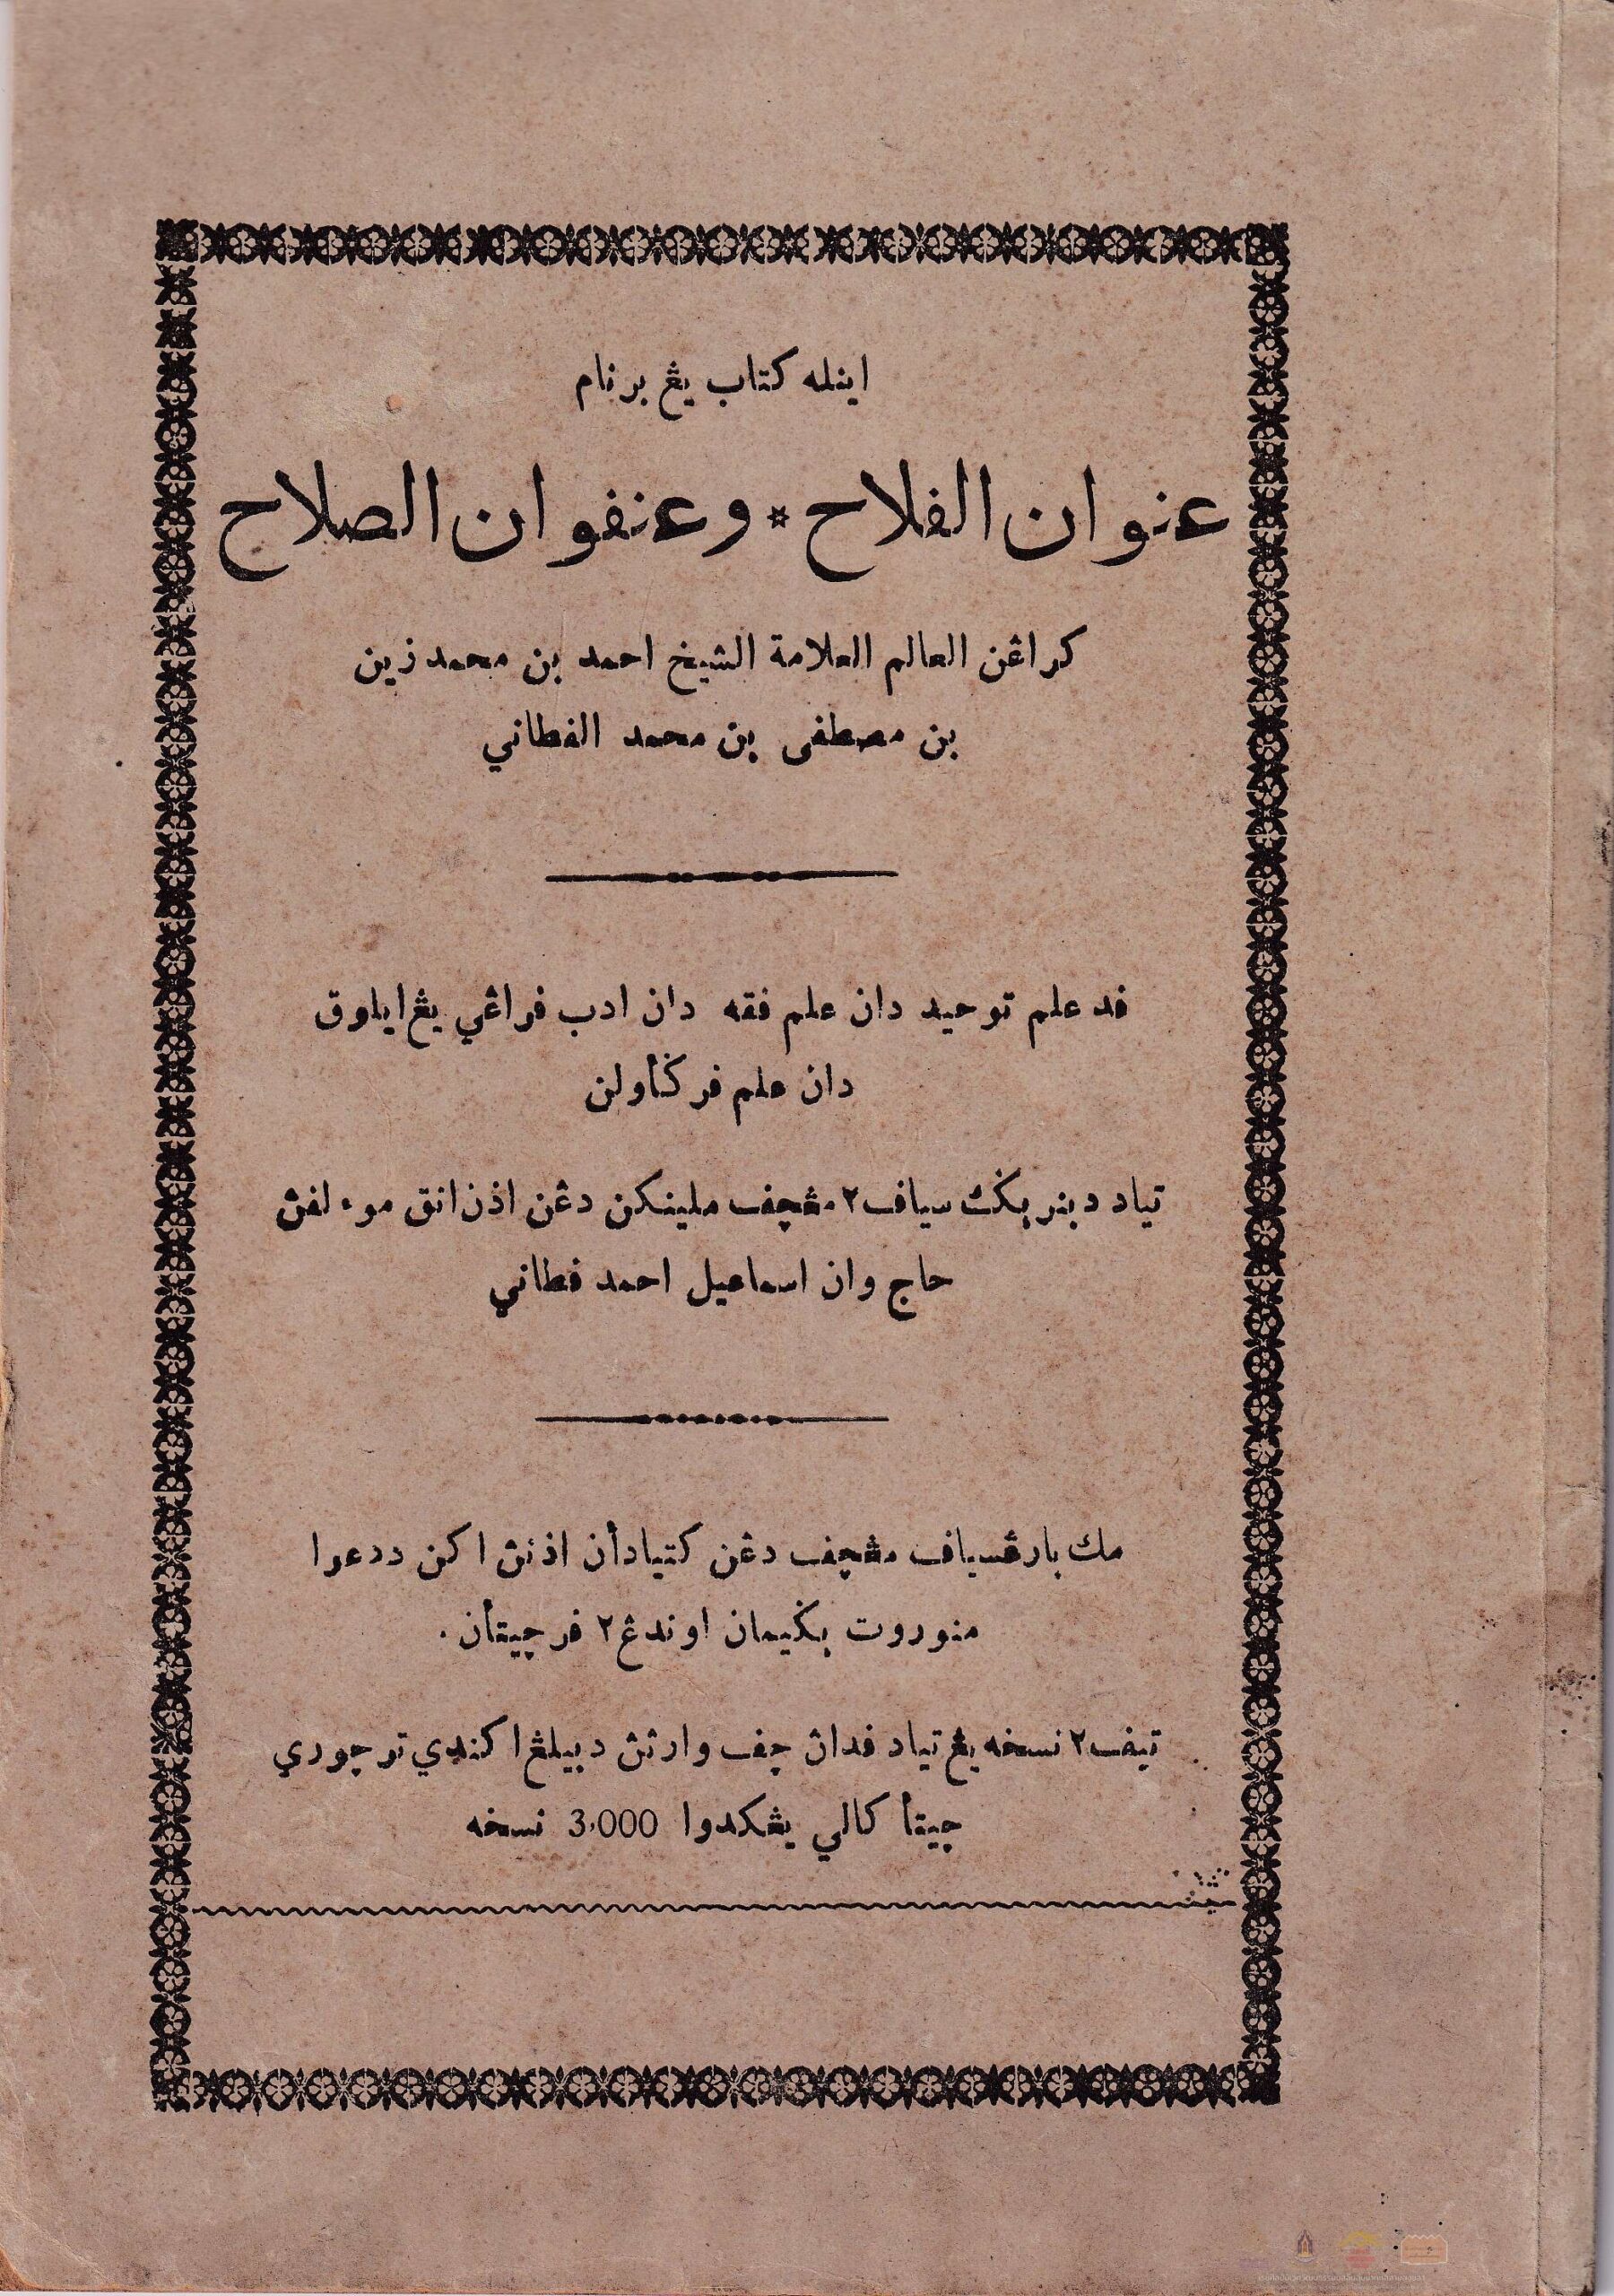 اينله كتاب يڠ برنام
عنوان الفلاح * وعنفوان الصلاح
كراڠن العالم العلامة الشيخ احمد بن محمد زين
بن مصطفى بن محمد الفطاني
فد علم توحيد دان علم فقه دان ادب فراڠي يڠ ايلوق
دان علم فرݢأولن
تياد دبنربݢك سياف٢ مڠچف ملينكن دڠن اذن انق موءلفڽ
حاج وان اسماعيل احمد فطاني
مك بارڠسياف مڠچف دڠن كتيادأن اذنڽ اكن ددعوا
منوروت بݢيمان اوندڠ٢ فرچيتأن.
تيف٢ نسخه يڠ تياد فداڽ چف وارثڽ دبيلڠ اكندي ترچوري
چيتأ كالي يڠكدوا 3,000 نسخه